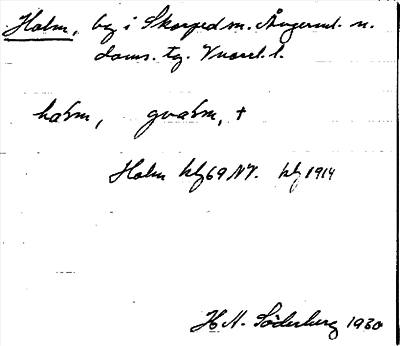 Holm, by i Skorped sn. Ångerml. n.
doms. tg. Vnorrl. l.
hɑʟm, gvɑʟm, +
Holm kbf 69 NV. kbf 1914
H. N. Söderberg 1930